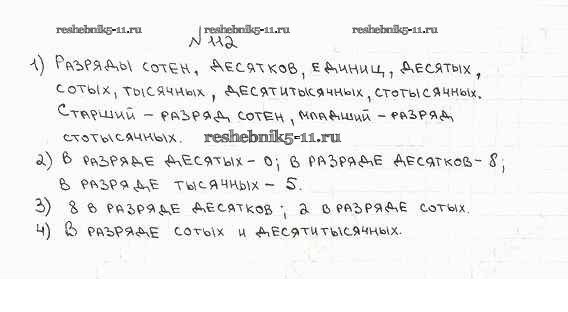 reshebnik5-11.ru reshebnik5-11.ru reshebnik5-11.ru
№112
1) Разряды сотен, десятков, единиц, десятых,
сотых, тысячных, десятитысячных, стотысячных.
Старший – разряд сотен, младший – разряд
стотысячных. reshebnik5-11.ru
2) В разряде десятых – 0; в разряде десятков – 8;
в разряде тысячных – 5.
3) 8 в разряде десятков; 2 в разряде сотых.
4) В разряде сотых и десятитысячных.
reshebnik5-11.ru reshebnik5-11.ru